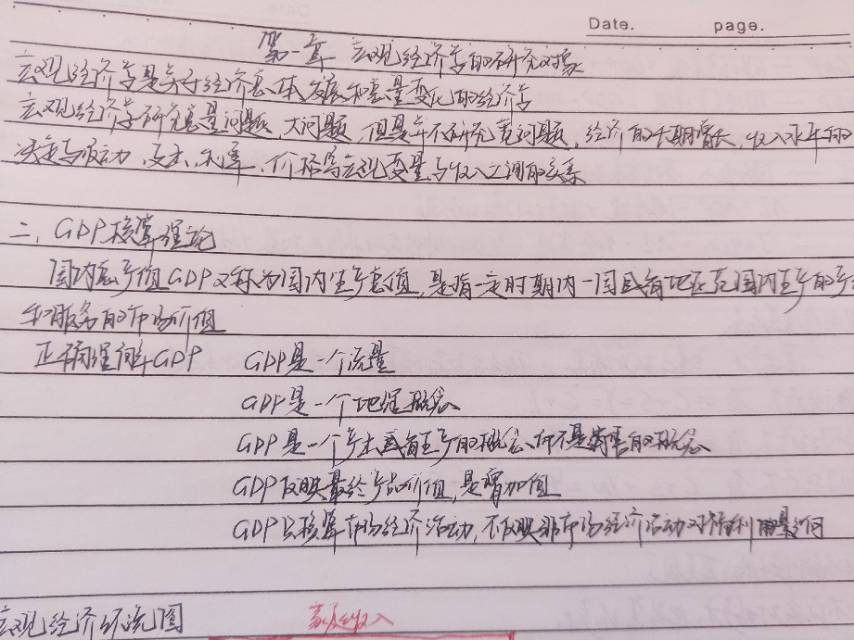 Date. page.
第一章 宏观经济学的研究对象
宏观经济学是关于经济总体发展和总量变化的经济学
宏观经济学研究总量问题、大问题,但是并不研究 问题,经济的长期增长,收入水平的
决定与波动、 、利率、价格等宏观变量与收入之间的关系
二、GDP核算理论
国内总产值GDP又称为国内生产总值,是指一定时期内一国或者地区范围内生产的产
和服务的市场价值
正确理解GDP GDP是一个流量
GDP是一个地理概念
GDP是一个产出或者生产的概念、而不是销售的概念
GDP反映最终产品价值,是增加值
GDP只核算市场经济活动,不反映非市场经济活动对福利
宏观经济环流图
收入